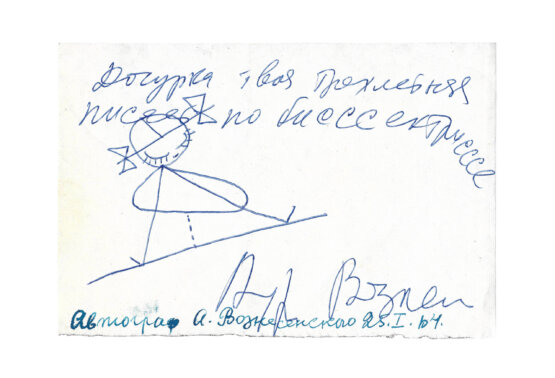 Дочурка твоя трехлетняя
писает по биссектриссе
Анд Вознес
Автограф А. Вознесенского 25.I.64.